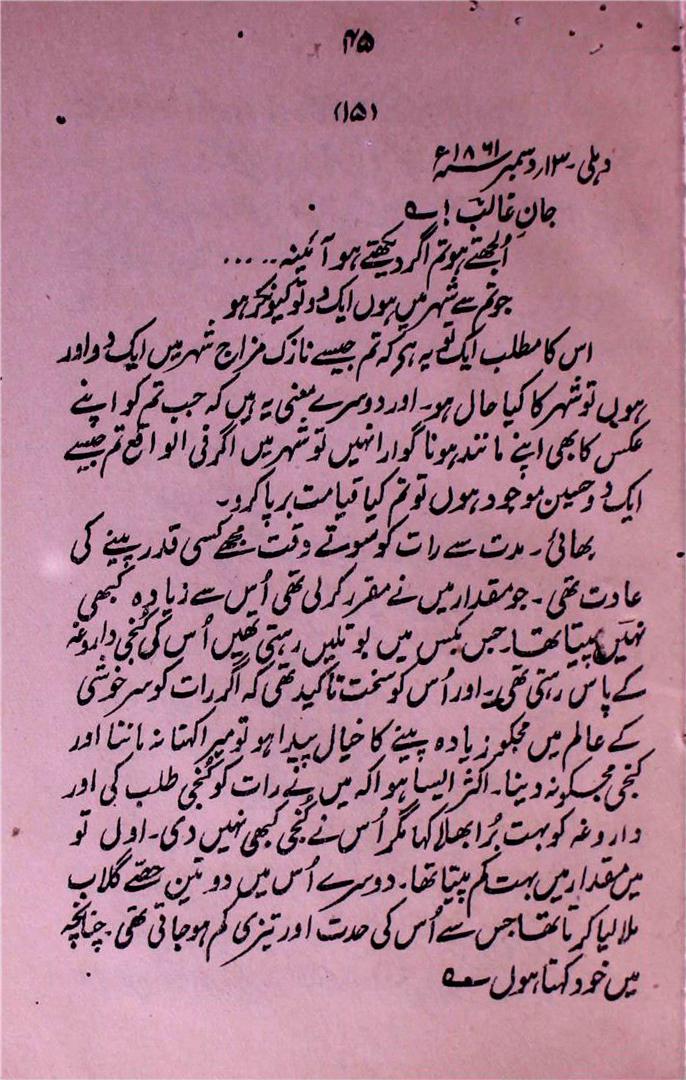 ۴۵
(۱۵)
دہلی۔ ۱۳؍دسمبر ۱۸۶۱ء
جانِ غالبؔ! ؎
اُلجھتے ہو تم اگر دیکھتے ہو آئینہ ۔۔۔۔۔
جو تم سے شہر میں ہوں ایک دو تو کیونکر ہو
اس کا مطلب ایک تو یہ ہے کہ تم جیسے نازک مزاج شہر میں ایک دو اور
ہوں تو شہر کا کیا حال ہو۔ اور دوسرے معنی یہ ہیں کہ جب تم کو اپنے
عکس کا بھی اپنے مانند ہونا گوارا نہیں تو شہر میں اگر فی الواقع تم جیسے
ایک دو حسین موجود ہوں تو تم کیا قیامت برپا کرو۔
بھائی۔ مدت سے رات کو سوتے وقت مجھے کسی قدر پینے کی
عادت تھی۔ جو مقدار میں نے مقرر کر لی تھی اُس سے زیادہ کبھی
نہیں پیتا تھا۔ جس بکس میں بوتلیں رہتی تھیں اُس کی کُنجی داروغہ
کے پاس رہتی تھی۔ اور اُس کو سخت تاکید تھی کہ اگر رات کو سرخوشی
کے عالم میں مجکو زیادہ پینے کا خیال پیدا ہو تو میرا کہنا نہ ماننا اور
کنجی مجکو نہ دینا۔ اکثر ایسا ہوا کہ میں نے رات کو کُنجی طلب کی اور
داروغہ کو بہت بُرا بھلا کہا مگر اُس نے کُنجی کبھی نہیں دی۔ اول تو
میں مقدار میں بہت کم پیتا تھا۔ دوسرے اُس میں دو تین حصّے گلاب
ملا لیا کرتا تھا جس سے اُس کی حدت اور تیزی کم ہو جاتی تھی۔ چنانچہ
میں خود کہتا ہوں ؎